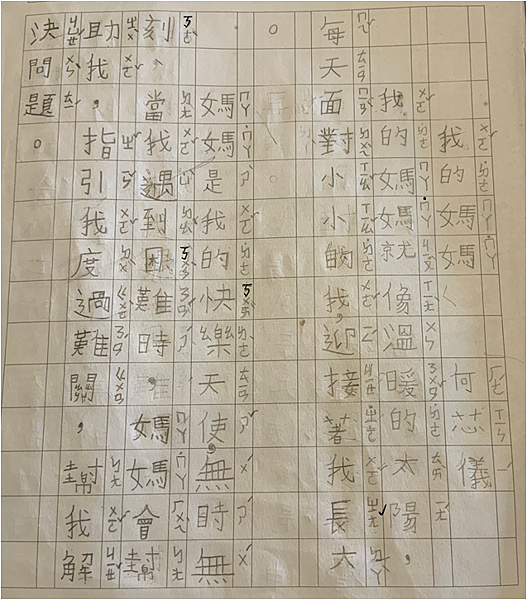 我的媽媽 何芯儀
我的媽媽就像溫暖的太陽，
每天面對小小的我，迎接著我長大
。
媽媽是我的快樂天使，無時無
刻，當我遇到困難時，媽媽會幫
助我，指引我度過難關，幫我解
決問題。